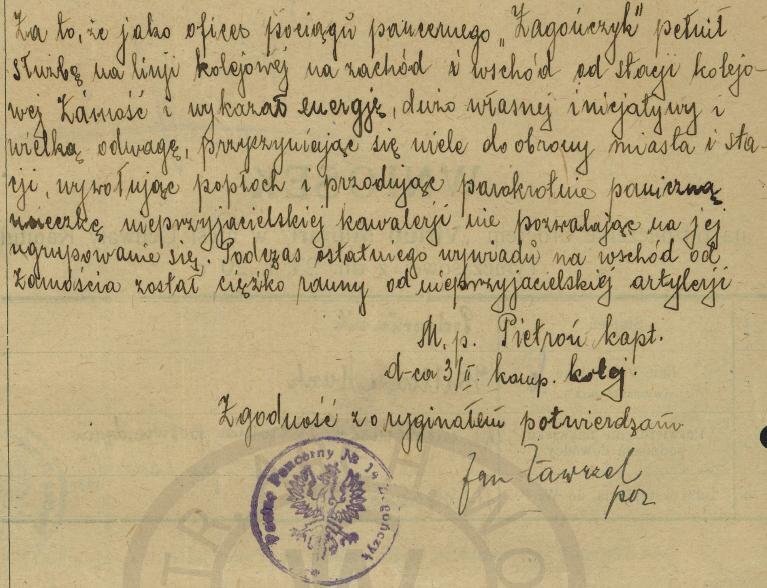 Za to, że jako oficer pociągu pancernego „Zagończyk" pełnił
służbę na linji kolejowej na zachód i wschód od stacji kolejo-
wej Zamość i wykazał energję, dużo własnej inicjatywy i
wielką odwagę, przyczyniając się wiele do obrony miasta i sta-
cji, wywołując popłoch i przodując parokrotnie paniczną
ucieczkę nieprzyjacielskiej kawalerji nie pozwalając na jej
ugrupowanie się. Podczas ostatniego wywiadu na wschód od
Zamościa został ciężko ranny od nieprzyjacielskiej artylerji
M. p. Pietroń kapt.
d-ca 3/II komp. kolej.
Zgodność z oryginałem potwierdzam
Jan
por
Pociąg Pancerny № 14 Zagończyk